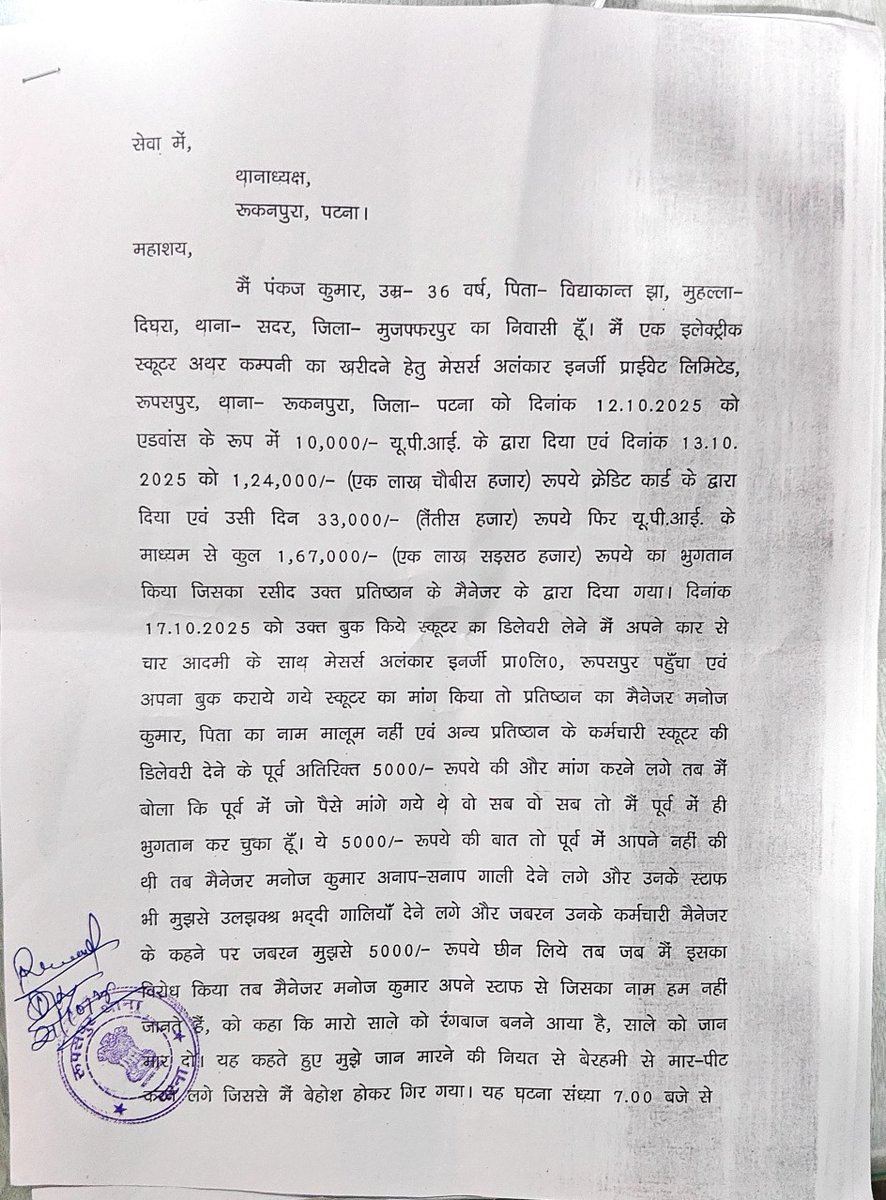 सेवा में,
थानाध्यक्ष,
रूकनपुरा, पटना।
महाशय,
मैं पंकज कुमार, उम्र- 36 वर्ष, पिता- विद्याकान्त झा, मुहल्ला-
दिघरा, थाना- सदर, जिला- मुजफ्फरपुर का निवासी हूँ। मैं एक इलेक्ट्रीक
स्कूटर अथर कम्पनी का खरीदने हेतु मेसर्स अलंकार इनर्जी प्राईवेट लिमिटेड,
रूपसपुर, थाना- रूकनपुरा, जिला- पटना को दिनांक 12.10.2025 को
एडवांस के रूप में 10,000/- यू.पी.आई. के द्वारा दिया एवं दिनांक 13.10.
2025 को 1,24,000/- (एक लाख चौबीस हजार) रूपये क्रेडिट कार्ड के द्वारा
दिया एवं उसी दिन 33,000/- (तैंतीस हजार) रूपये फिर यू.पी.आई. के
माध्यम से कुल 1,67,000/- (एक लाख सड़सठ हजार) रूपये का भुगतान
किया जिसका रसीद उक्त प्रतिष्ठान के मैनेजर के द्वारा दिया गया। दिनांक
17.10.2025 को उक्त बुक किये स्कूटर का डिलेवरी लेने मैं अपने कार से
चार आदमी के साथ मेसर्स अलंकार इनर्जी प्रा0लि0, रूपसपुर पहुँचा एवं
अपना बुक कराये गये स्कूटर का मांग किया तो प्रतिष्ठान का मैनेजर मनोज
कुमार, पिता का नाम मालूम नहीं एवं अन्य प्रतिष्ठान के कर्मचारी स्कूटर की
डिलेवरी देने के पूर्व अतिरिक्त 5000/- रूपये की और मांग करने लगे तब मैं
बोला कि पूर्व में जो पैसे मांगे गये थे वो सब वो सब तो मैं पूर्व में ही
भुगतान कर चुका हूँ। ये 5000/- रूपये की बात तो पूर्व में आपने नहीं की
थी तब मैनेजर मनोज कुमार अनाप-सनाप गाली देने लगे और उनके स्टाफ
भी मुझसे उलझक्श्र भद्दी गालियाँ देने लगे और जबरन उनके कर्मचारी मैनेजर
के कहने पर जबरन मुझसे 5000/- रूपये छीन लिये तब जब मैं इसका
विरोध किया तब मैनेजर मनोज कुमार अपने स्टाफ से जिसका नाम हम नहीं
जानते हैं, को कहा कि मारो साले को रंगबाज बनने आया है, साले को जान
मार दो। यह कहते हुए मुझे जान मारने की नियत से बेरहमी से मार-पीट
करने लगे जिससे मैं बेहोश होकर गिर गया। यह घटना संध्या 7.00 बजे से
रूपसपुर थाना
पटना